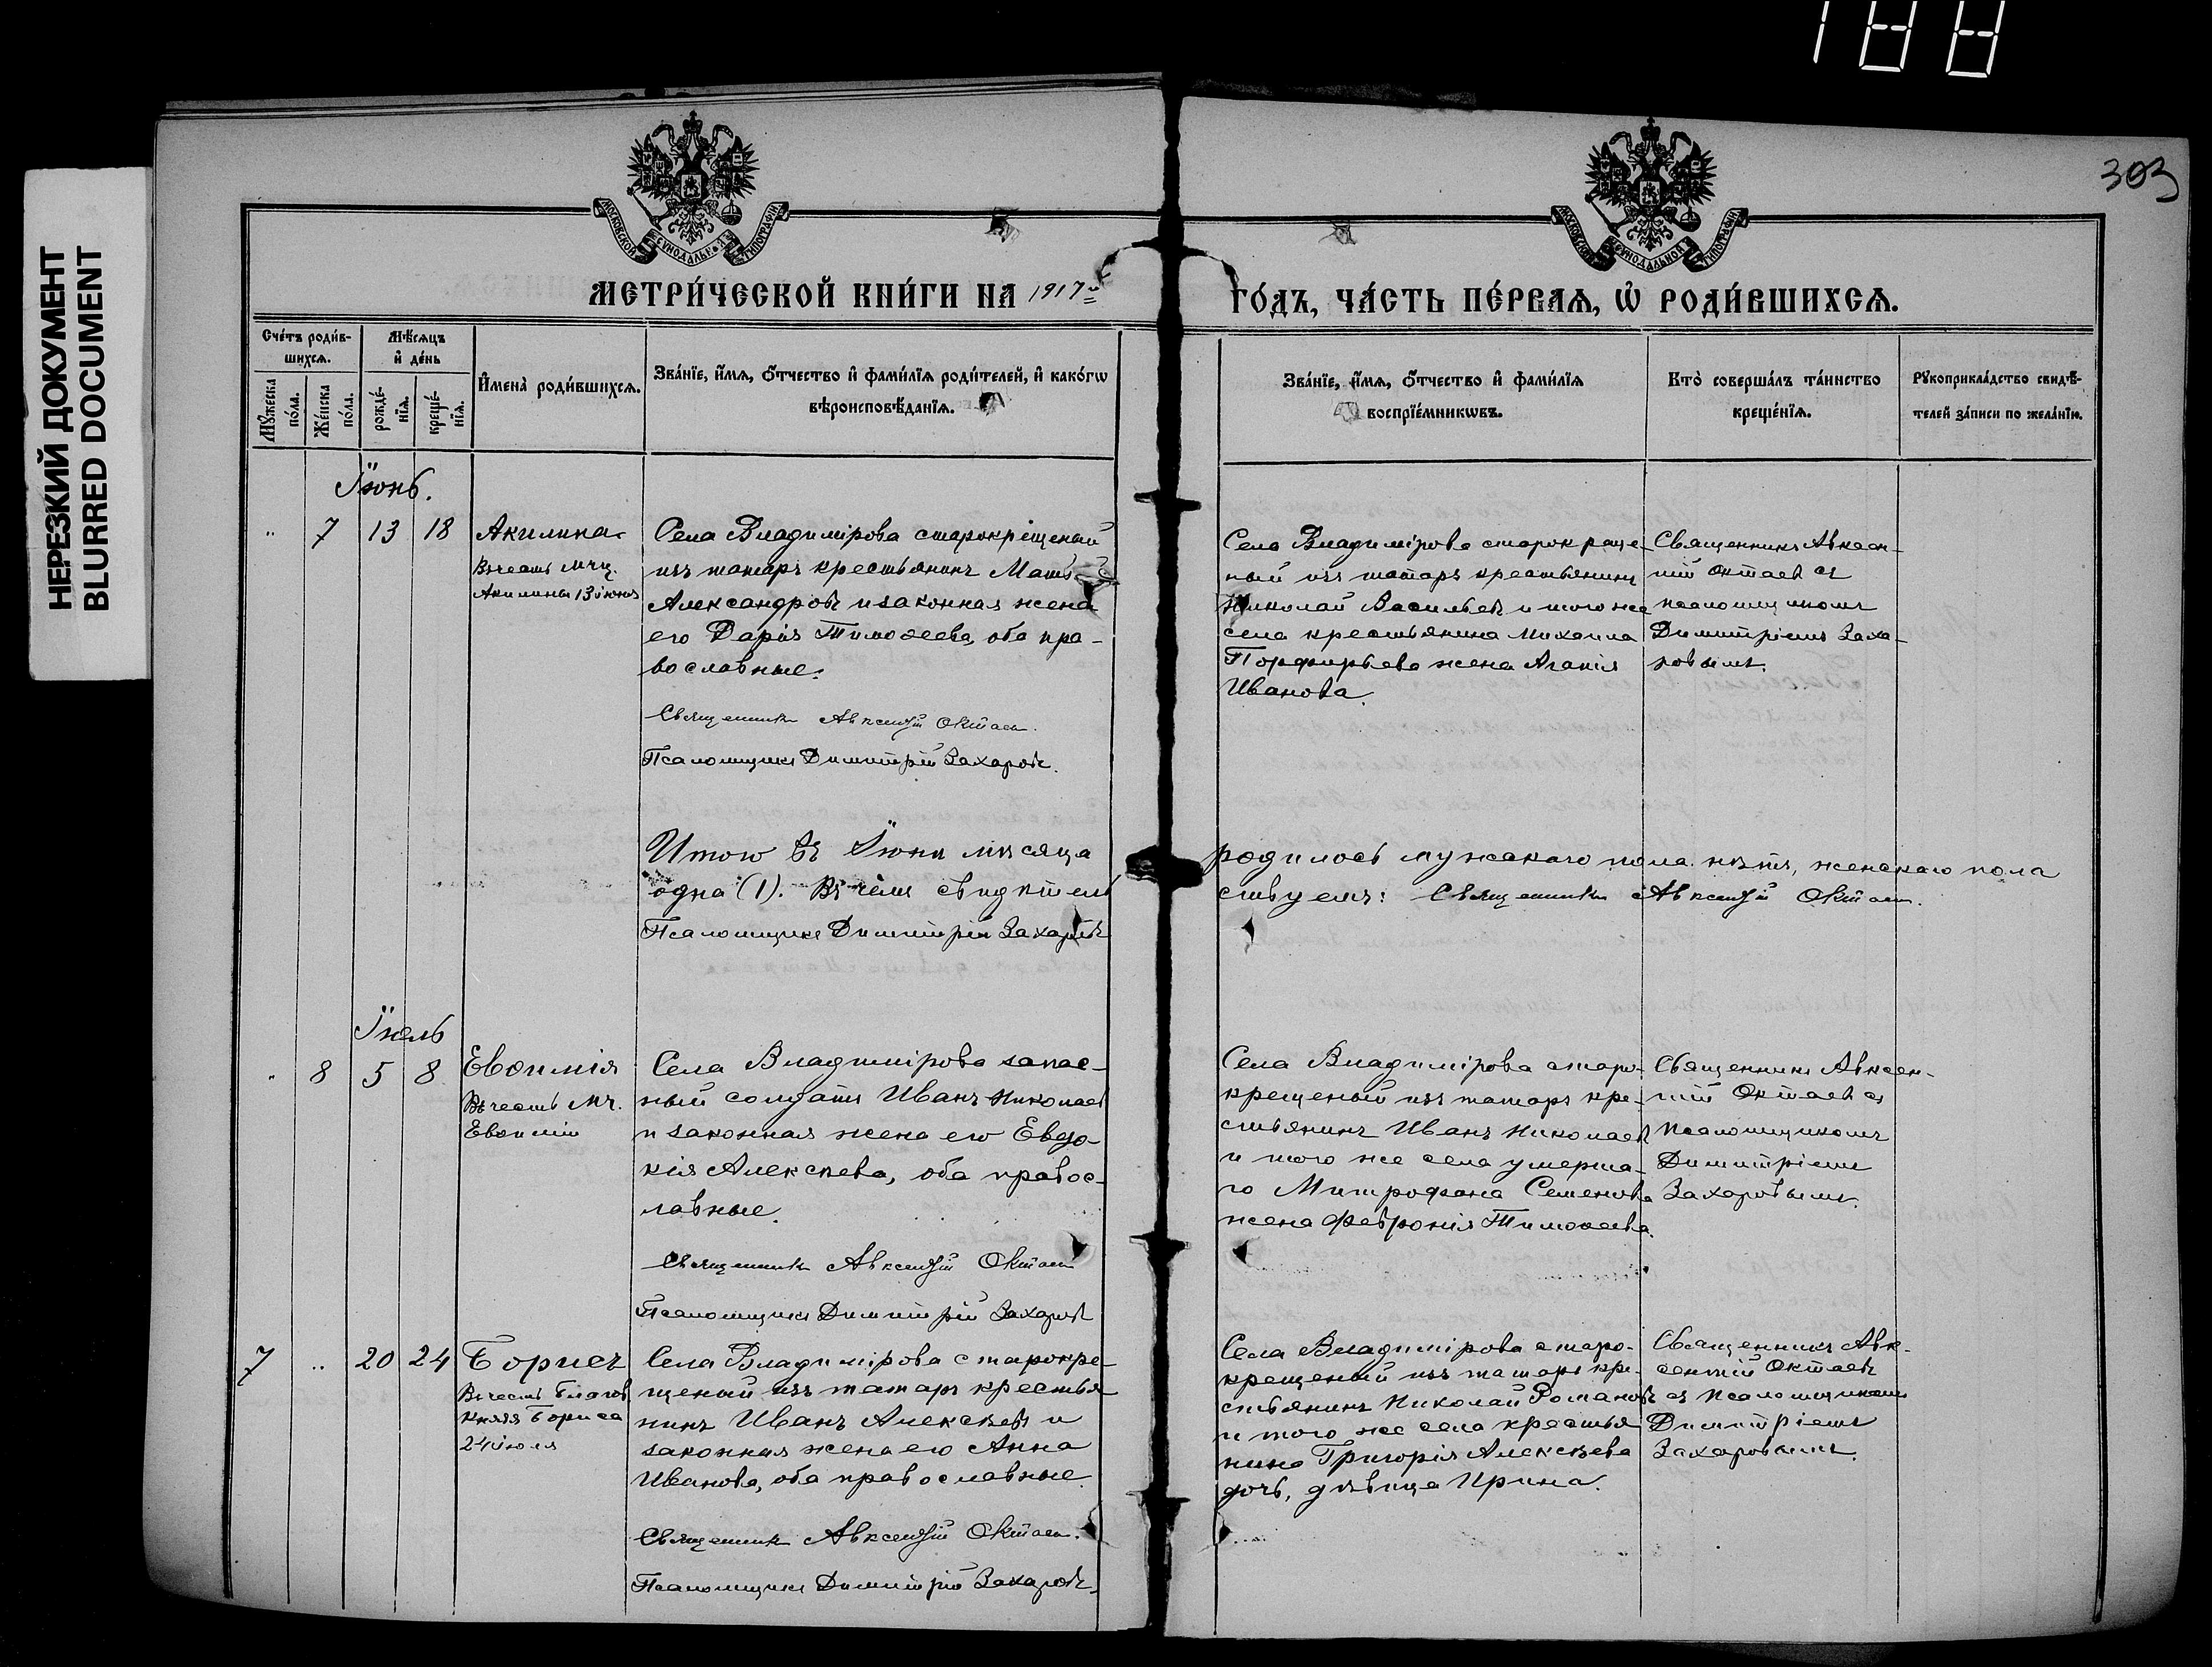 188
303
НЕРЕЗКИЙ ДОКУМЕНТ
BLURRED DOCUMENT
МОСКОВСКОЙ СѴНОДАЛЬНОЙ ТИПОГРАФІИ
МОСКОВСКОЙ СѴНОДАЛЬНОЙ ТИПОГРАФІИ
МЕТРИ́ЧЕСКОЙ КНИ́ГИ НА 1917й
ГО́ДЪ, ЧА́СТЬ ПЕ́РВАѦ, Ѡ҆ РОДИ́ВШИХСѦ.
Сче́тъ роди́в-
шихсѧ.
Мѣ́сѧцъ
и҆ де́нь
Мꙋ́жеска
по́ла.
Же́нска
по́ла.
рожде́-
нїѧ.
креще́-
нїѧ.
И҆мена̀ роди́вшихсѧ.
Зва́нїе, и҆́мѧ, ѻ҆́тчество и҆ фами́лїѧ роди́телей, и҆ како́гѡ
вѣроисповѣ́данїѧ.
Зва́нїе, и҆́мѧ, ѻ҆́тчество и҆ фами́лїѧ
воспрїе́мникѡвъ.
Кто̀ соверша́лъ та́инство
креще́нїѧ.
Рꙋкоприкла́дство свидѣ́-
телей за́писи по жела́нїю.
Іюнь.
" 7 13 18
Акилина
Въ честь мчц.
Акилины 13 іюня
Села Владимірова старокрещеный
изъ татаръ крестьянинъ
Александровъ и законная жена
его Дарія Тимоѳеева, оба пра-
вославные.
Священникъ Авксентій Октаевъ.
Псаломщикъ Димитрій Захаровъ.
Села Владимірова старокреще-
ный изъ татаръ крестьянинъ
Николай Васильевъ и того же
села крестьянина Михаила
Порфирьева жена Агапія
Иванова.
Священникъ Авксен-
тій Октаевъ съ
псаломщикомъ
Димитріемъ Заха-
ровымъ.
Итого въ Іюнѣ мѣсяцѣ родилось мужскаго пола нѣтъ, женскаго пола
одна (1). Въ чемъ свидѣтельствуемъ: Священникъ Авксентій Октаевъ.
Псаломщикъ Димитрій Захаровъ
Іюль
" 8 5 8
Евѳимія
Въ честь мч.
Евѳиміи
Села Владимірова запас-
ный солдатъ Иванъ Николаевъ
и законная жена его Евдо-
кія Алексѣева, оба правос-
лавные.
Священникъ Авксентій Октаевъ
Псаломщикъ Димитрій Захаровъ
Села Владимірова старо-
крещеный изъ татаръ кре-
стьянинъ Иванъ Николаевъ
и того же села умерша-
го Митрофана Семенова
жена Февронія Тимоѳеева.
Священникъ Авксен-
тій Октаевъ съ
псаломщикомъ
Димитріемъ
Захаровымъ.
7 " 20 24
Борисъ
Въ честь благов
князя Бориса
24 іюля
Села Владимірова старокре-
щеный изъ татаръ крестья-
нинъ Иванъ Алексѣевъ и
законная жена его Анна
Иванова, оба православные.
Священникъ Авксентій Октаевъ.
Псаломщикъ Димитрій Захаровъ.
Села Владимірова старо-
крещеный изъ татаръ кре-
стьянинъ Николай Романовъ
и того же села крестья
нина Григорія Алексѣева
дочь, дѣвица Ирина.
Священникъ Авк-
сентій Октаевъ
съ псаломщикомъ
Димитріемъ
Захаровымъ.